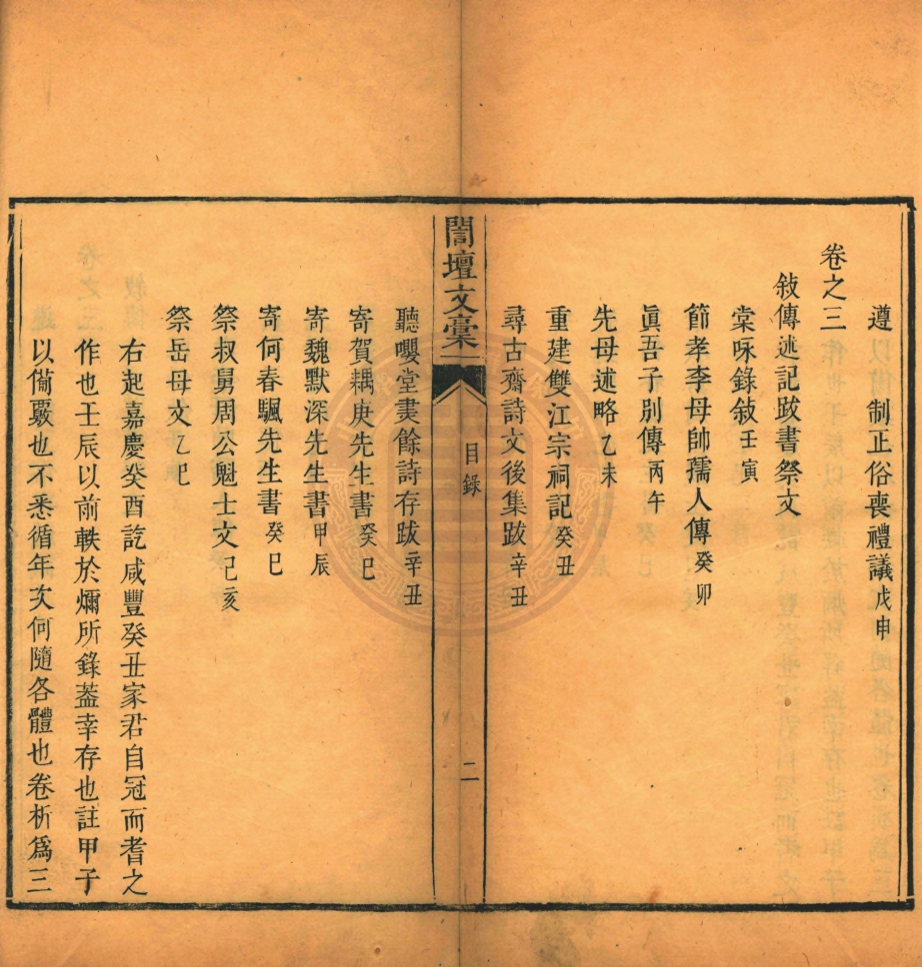 遵　制正俗喪禮議戊申
卷之三
敍傳述記跋書祭文
棠咏錄敍壬寅
節孝李母帥孺人傳癸卯
眞吾子別傳丙午
先母述略乙未
重建雙江宗祠記癸丑
尋古齋詩文後集跋辛丑
誾壇文稾
目錄
二
聽嚶堂𦘕餘詩存跋辛丑
寄賀耦庚先生書癸巳
寄魏默深先生書甲辰
寄何春颿先生書癸巳
祭叔舅周公魁士文己亥
祭岳母文乙巳
右起嘉慶癸酉訖咸豐癸丑家君自冠而耆之
作也壬辰以前軼於爤所錄蓋幸存也註甲子
以僃覈也不悉循年次何隨各體也卷析爲三